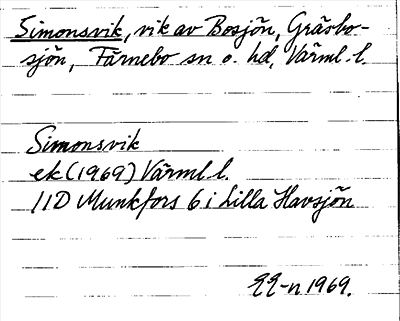 Simonsvik, vik av Bosjön, Gräsbo-
sjön, Färnebo sn o. hd, Värml. l.
Simonsvik
ek (1969) Värml l.
11D Munkfors 6 i Lilla Havsjön
1969.